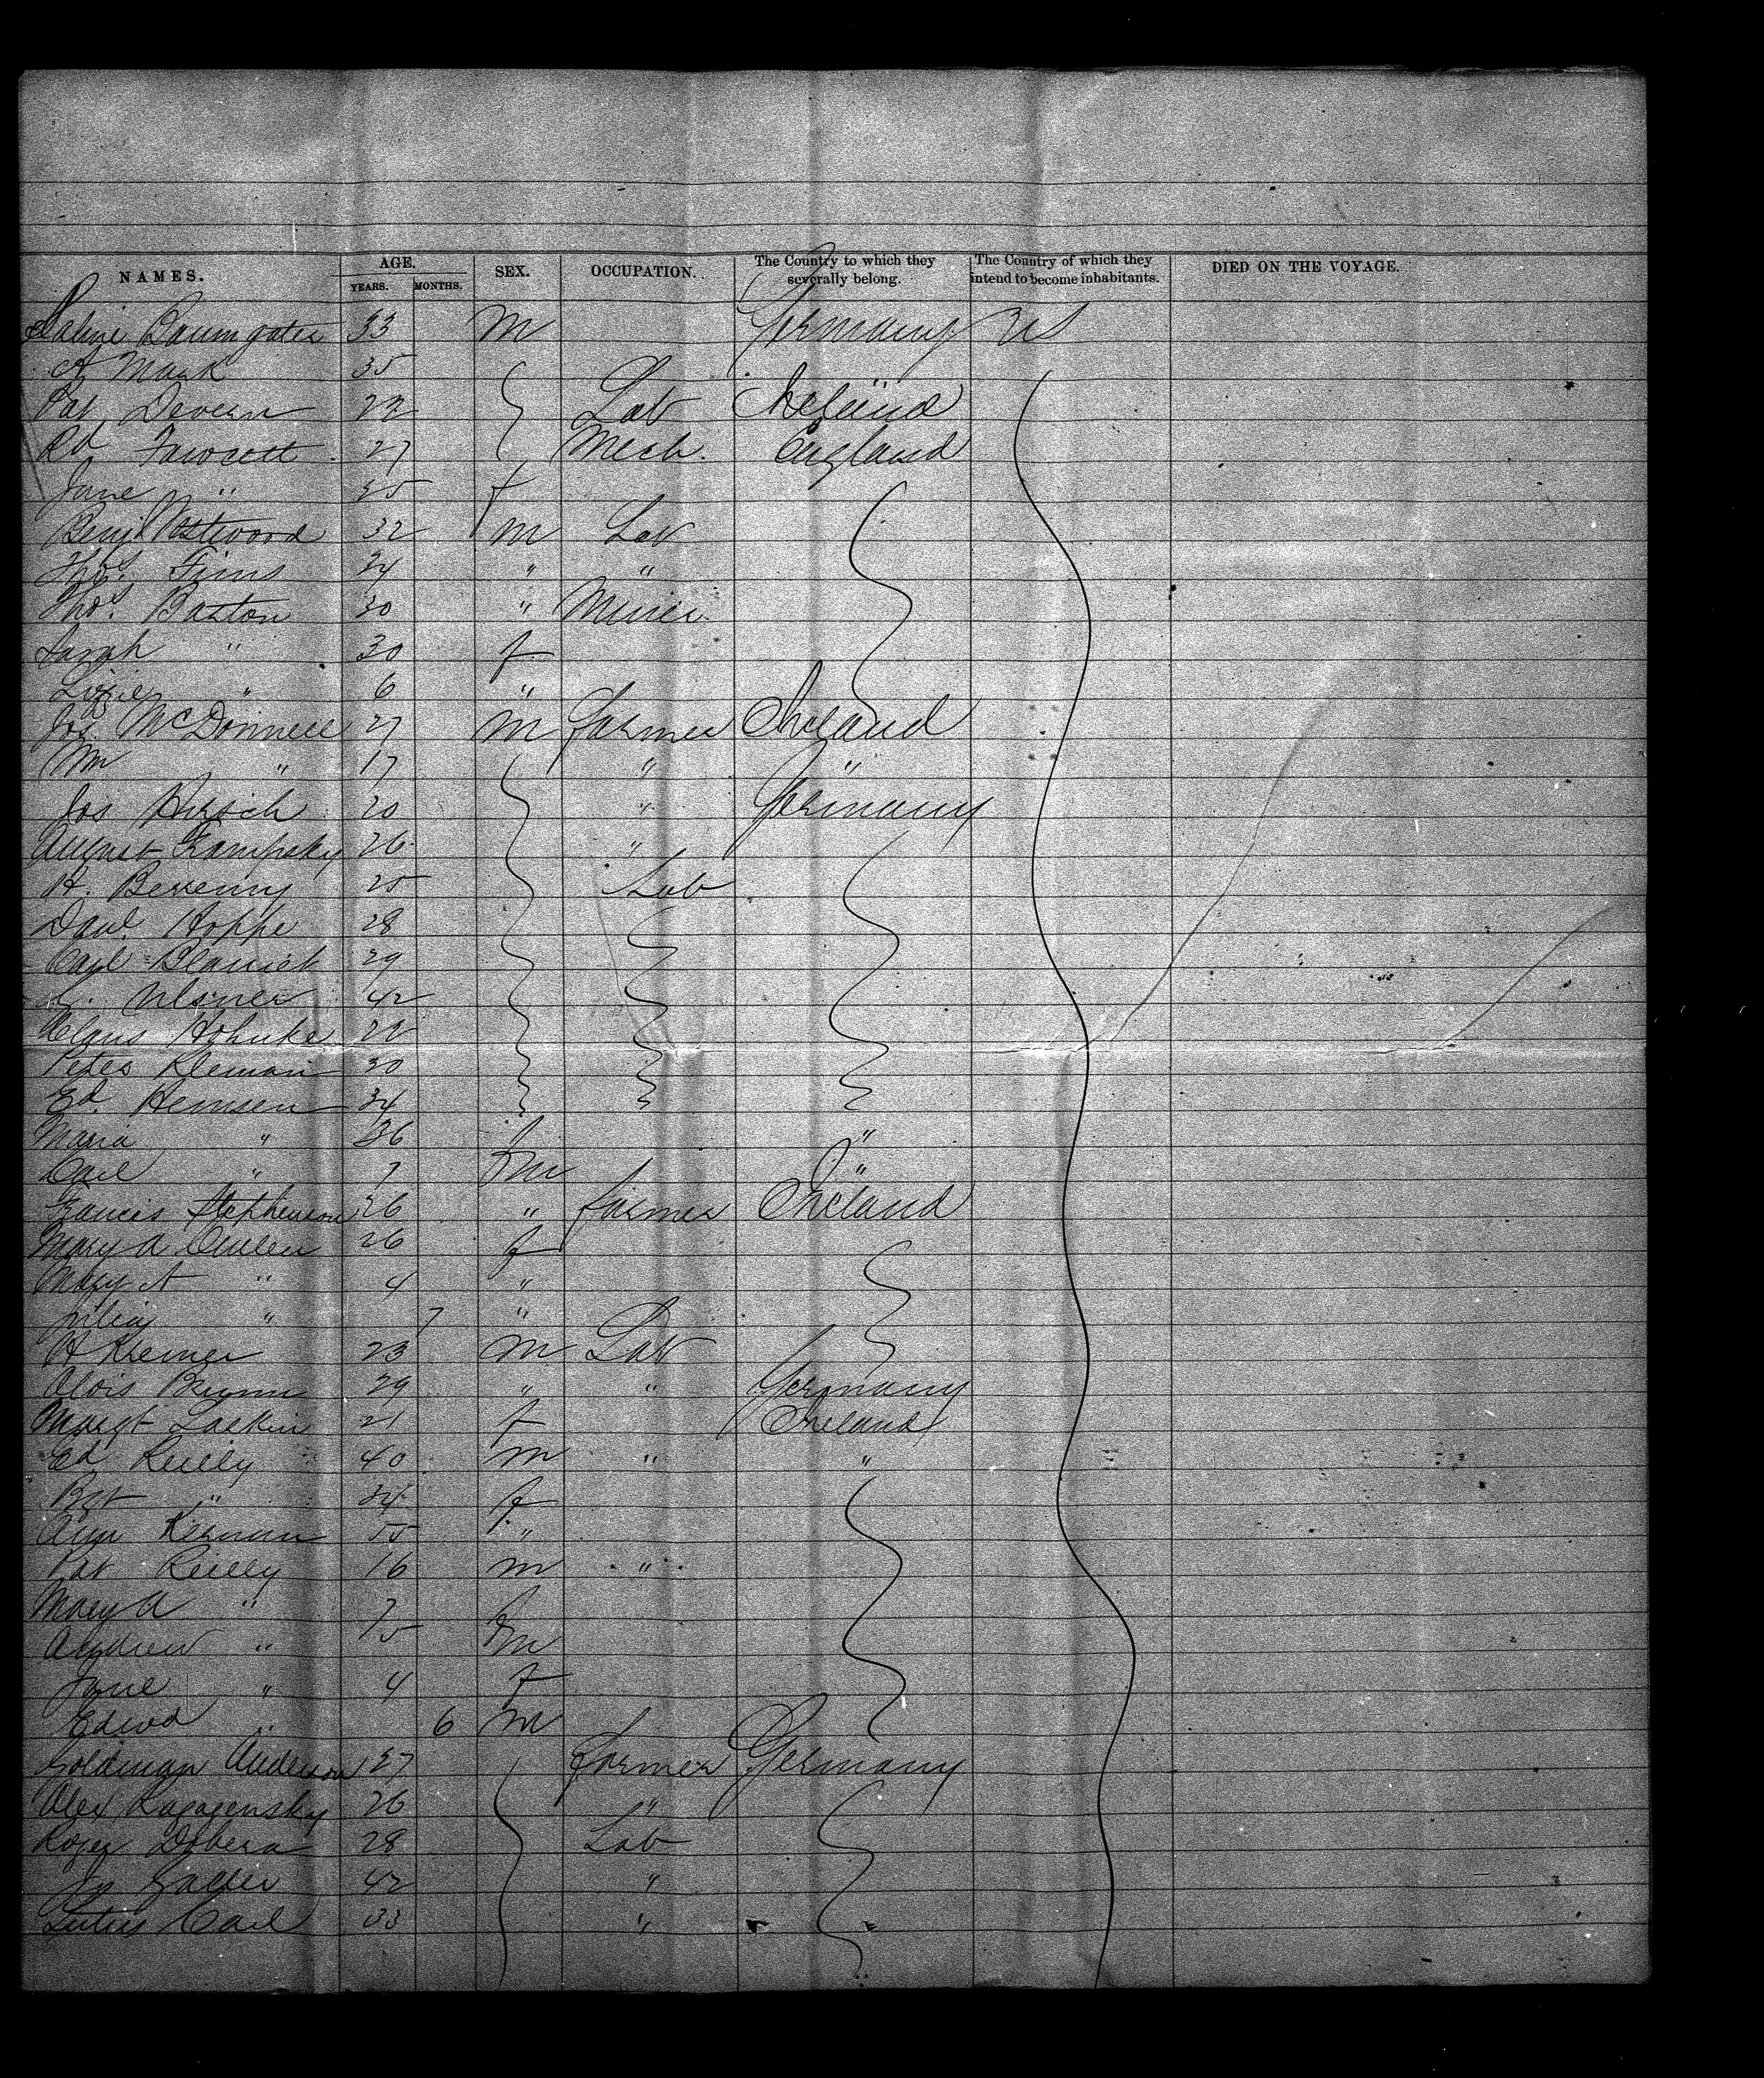 NAMES. AGE. YEARS. MONTHS. SEX. OCCUPATION. The Country to which they severally belong. The Country of which they intend to become inhabitants. DIED ON THE VOYAGE.
Baumgater 33 m Germany US
A Mark 35
Pat Devern 22 Lab Ireland
Rd Fawcett 27 Mech. England
Jane " 25 f
Benj Astwood 32 m Lab
Thos. Fims 24 " "
Thos. Baston 30 " Miner
Sarah " 30 f
Lizzie " 6 "
Jos. McDonnell 27 m farmer Ireland
Wm " 17 " "
Jos Hirsch 20 " Germany
August Kampsky 26 "
H. Berreny 25 Lab
Danl. Hoppe 28
Carl 29
42
Claus Hohnke 22
Peter Kleman 30
Ed. Hemsen 34
Maria " 36 f "
Carl " 7 m "
Francis Stephenson 26 " farmer Ireland
Mary A Cullen 26 f
Mary A " 4 "
Julia " 7 "
H Kremer 23 m Lab
Alois 29 " " Germany
Margt Larkin 21 f Ireland
Ed Reilly 40 m " "
Bgt " 34 f
Ann Kernan 55 "
Pat Reilly 16 m "
Mary A " 7 f
Andrew " 5 m
Jane " 4 f
Edwd " 6 m
Goldman Anderson 27 farmer Germany
Alex 26 "
Roger Dobera 28 Lab
42 "
Carl 33 " "